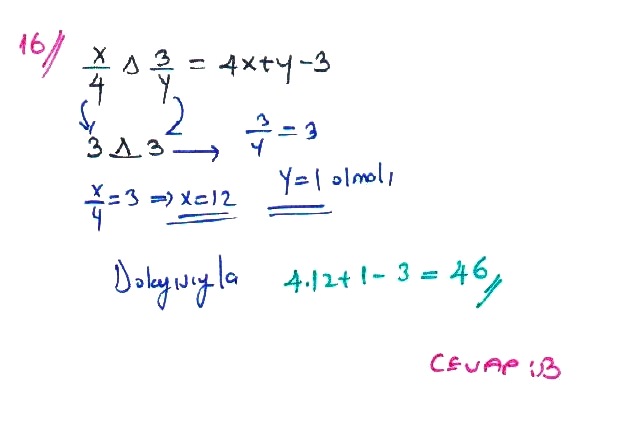 16// x/4 Δ 3/y = 4x+y-3
3 Δ 3 → 3/y = 3
x/4 = 3 ⇒ x=12 y=1 olmalı
Dolayısıyla 4.12+1-3 = 46//
CEVAP :B